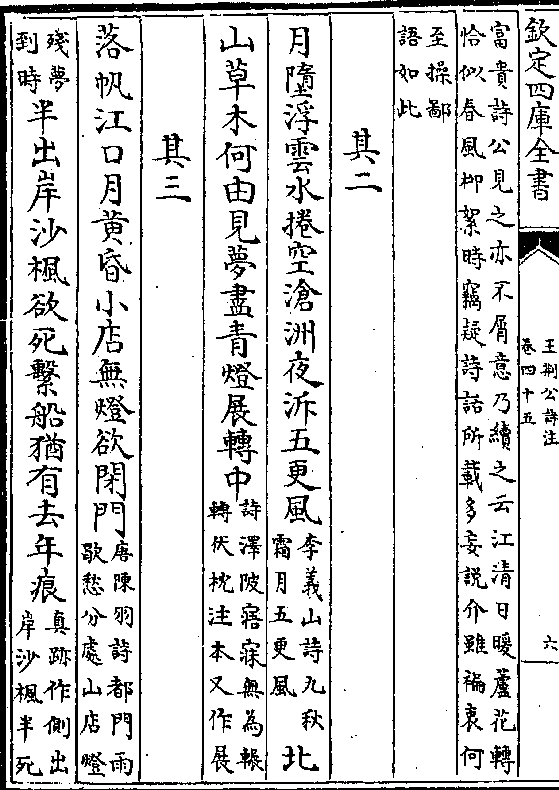 欽定四庫全書
王荆公詩注
卷四十五
六
富貴詩公見之亦不屑意乃續之云江清日暖蘆花轉
恰似春風柳絮時竊疑詩話所載多妄說介雖褊衷何
至操鄙
語如此
其二
月墮浮雲水捲空滄洲夜泝五更風
李義山詩九秋
霜月五更風
北
山草木何由見夢盡青燈展轉中
詩澤陂寤寐無為輾
轉伏枕注本又作展
其三
落帆江口月黃昏小店無燈欲閉門
唐陳羽詩都門雨
歇愁分處山店燈
殘夢
到時
半出岸沙楓欲死繫船猶有去年痕
真跡作側出
岸沙楓半死